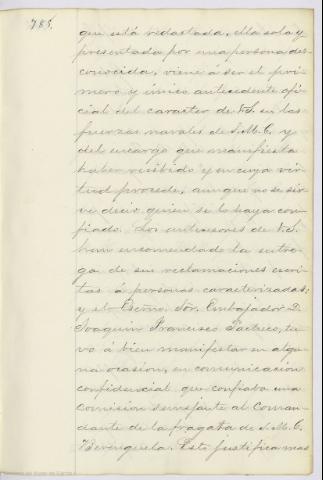 785.
que está redactada, ella sola y
presentada por una persona des-
conocida, viene á ser el pri-
mero y único antecedente ofi-
cial del caracter de V.S. en las
fuerzas navales de S.M.C. y
del encargo que manifiesta
haber recibido y en cuya vir-
tud procede, aunque no se sir-
ve decir quien se lo haya con-
fiado. Los antecesores de V.S.
han encomendado la entre-
ga de sus reclamaciones escri-
tas á personas caracterizadas;
y el Escmo. Sor. Embajador D.
Joaquin Francisco Pacheco, tu-
vo á bien manifestar en algu-
na ocasion, en comunicacion
confidencial que confiaba una
comision semejante al Coman-
dante de la fragata de S.M.C.
Berenguela. Esto justifica mas